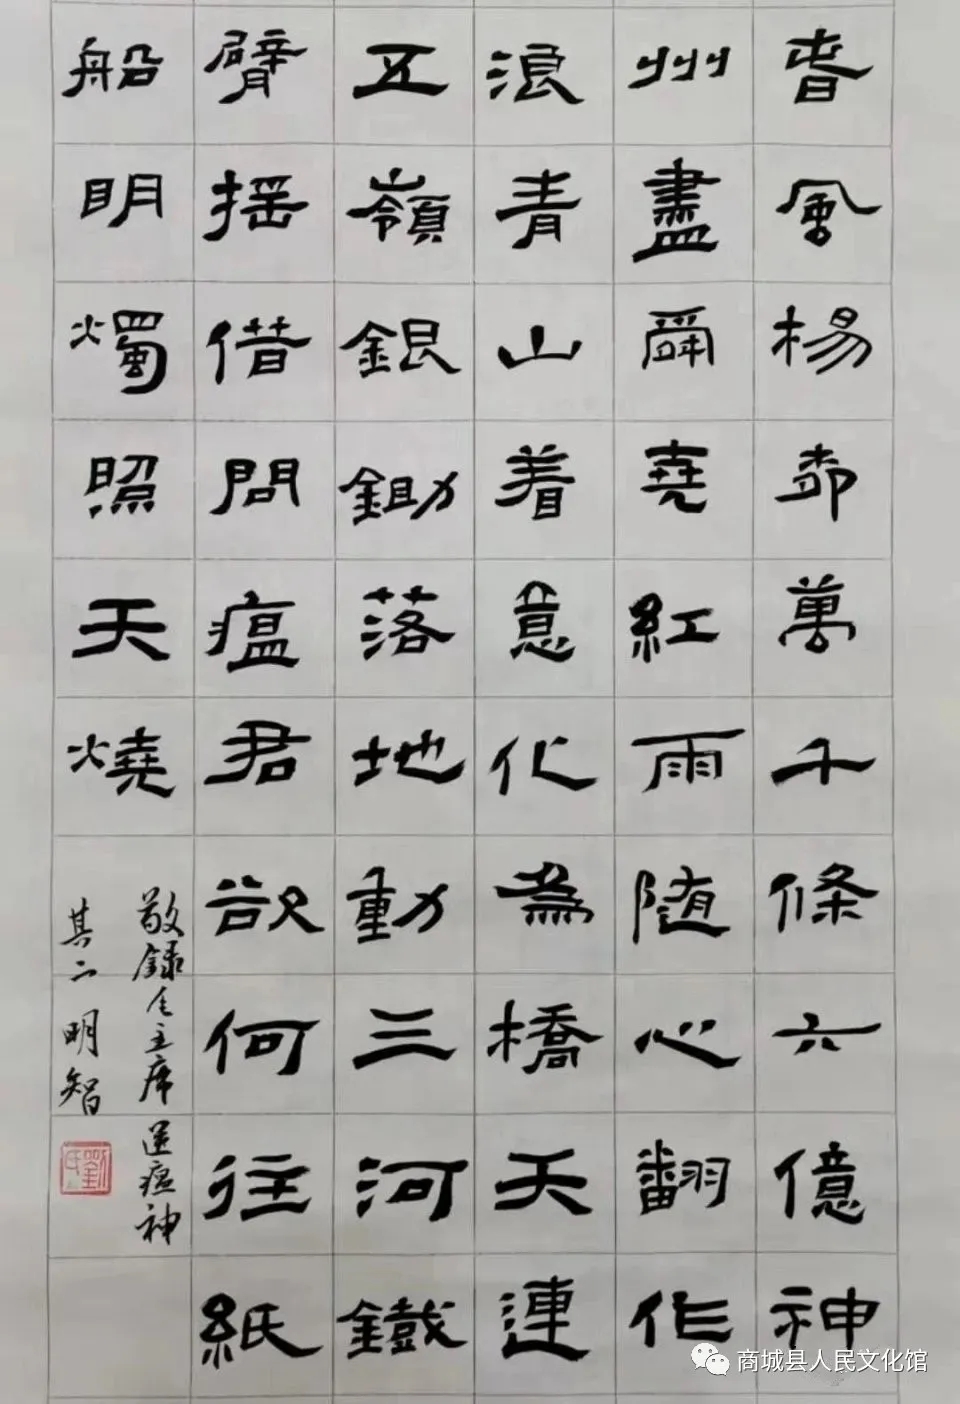 春風楊柳萬千條六億神
州盡舜堯紅雨隨心翻作
浪青山着意化為橋天連
五嶺銀鋤落地動三河鐵
臂摇借問瘟君欲何往紙
船明燭照天燒
敬録毛主席送瘟神
其二明智
劉氏
商城县人民文化馆